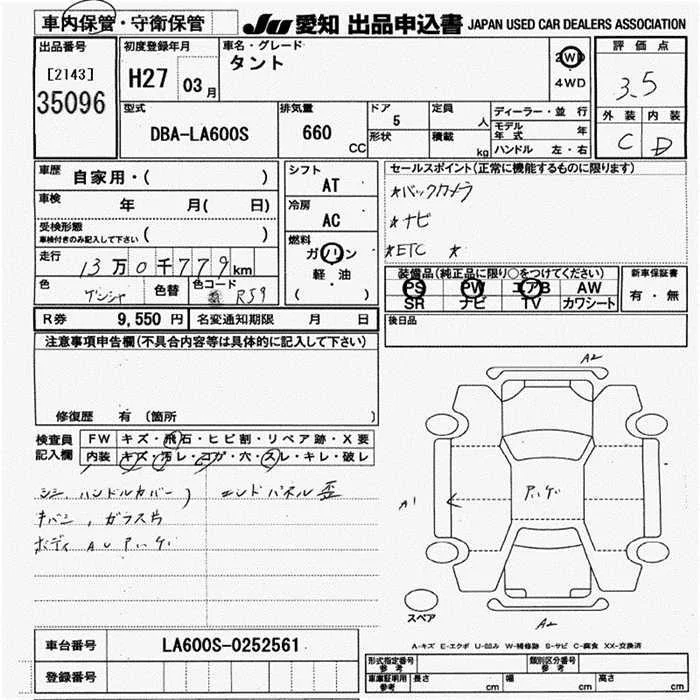 車内保管・守衛保管
JU 愛知 出品申込書 JAPAN USED CAR DEALERS ASSOCIATION
出品番号
[2143]
35096
初度登録年月
H27 03 月
車名・グレード
タント
2WD
4WD
評価点
3.5
外装 内装
C D
型式
DBA-LA600S
排気量
660 CC
ドア
5
形状
定員
人
積載
kg
ディーラー・並行
モデル年式 年
ハンドル 左・右
車歴
自家用・( )
車検
年 月( 日)
受検形態
車検付きのみ記入して下さい ( )
走行
13万0千779km
色
色替
色コード
R59
シフト
AT
冷房
AC
燃料
ガソリン
軽油
( )
セールスポイント(正常に機能するものに限ります)
*バックカメラ
*ナビ
*ETC *
装備品(純正品に限り○をつけてください)
PS PW エアB AW
SR ナビ TV カワシート
新車保証書
有・無
後日品
R券 9,550 円
名変通知期限 月 日
注意事項申告欄(不具合内容等は具体的に記入して下さい)
修復歴 有 (箇所 )
検査員記入欄
FW キズ・飛石・ヒビ割・リペア跡・X要
内装 キズ・汚レ・コゲ・穴・スレ・キレ・破レ
シミ、ハンドルカバー
エンドパネル歪
キバミ、ガラス片
ボディ AU
A2
A1
A2
スペア
A-キズ E-エクボ U-凹み W-補修跡 S-サビ C-腐食 XX-交換済
車台番号
LA600S-0252561
登録番号
形式指定番号 参考
類別区分番号 参考
車庫証明用 参考
長さ cm
幅 cm
高さ cm